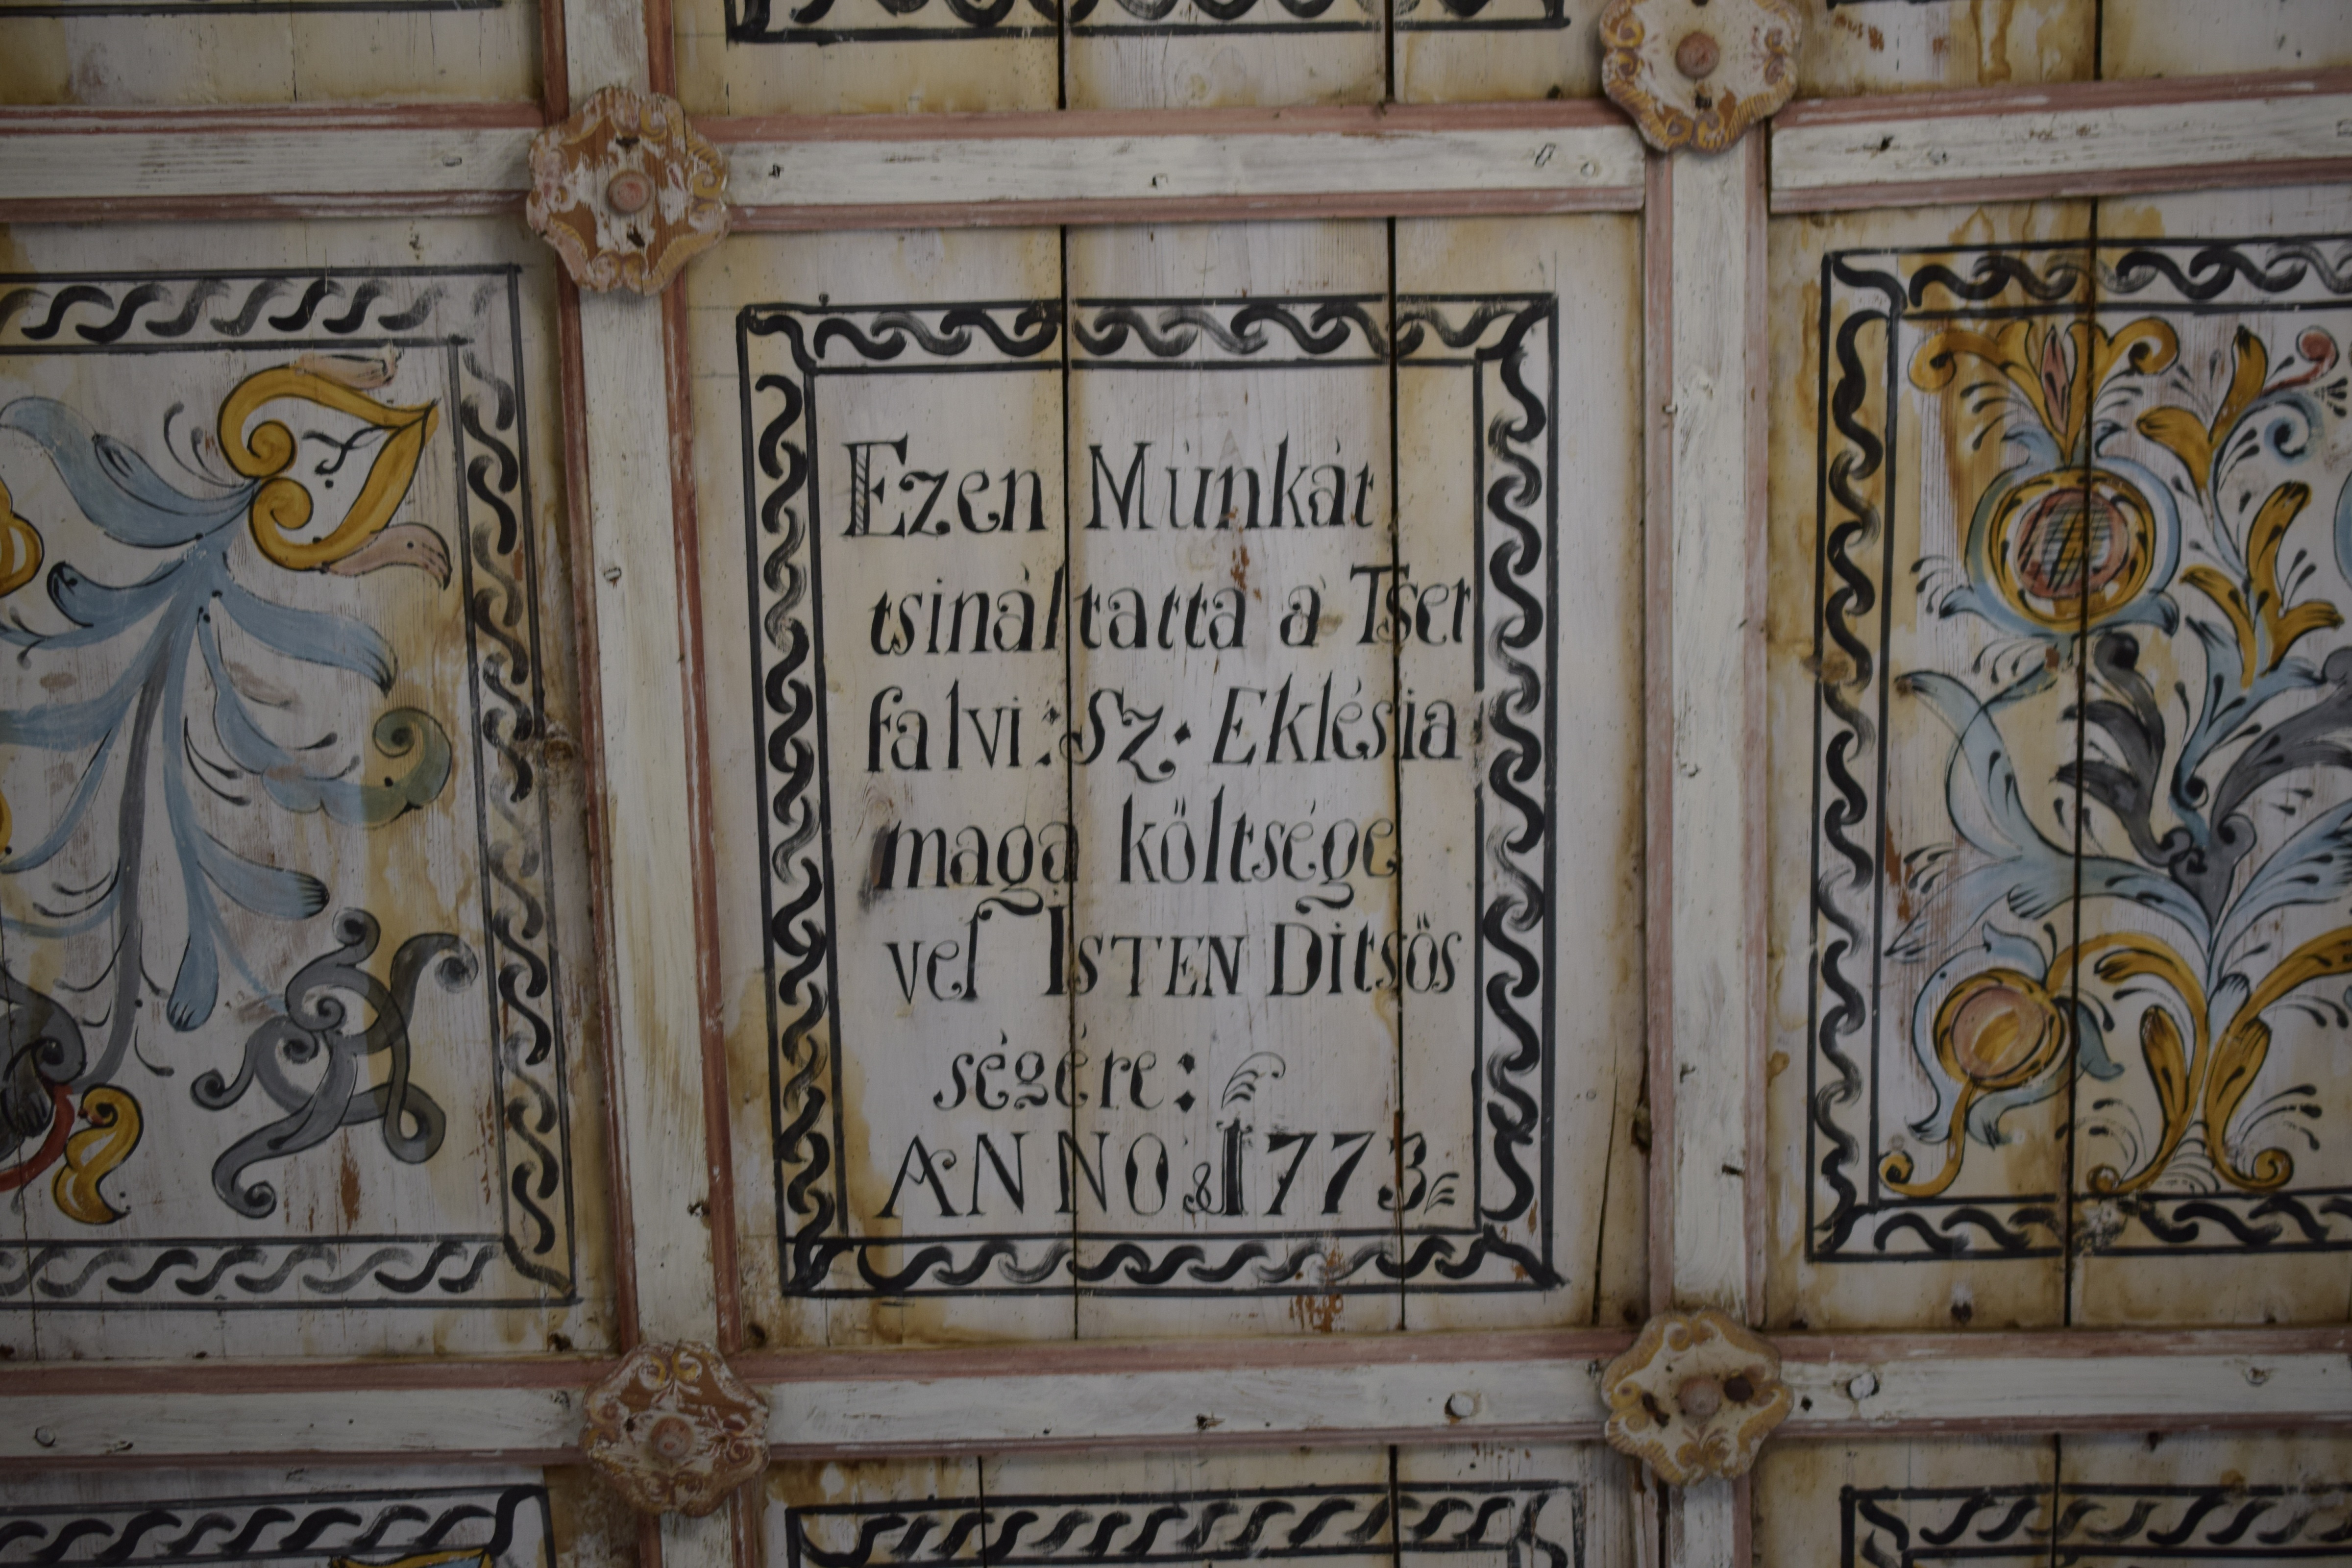 Ezen Munkát
tsináltatta a' Tset
falvi: Sz: Eklésia
maga költsége
vel ISTEN Ditsös
ségére:
ANNO 1773